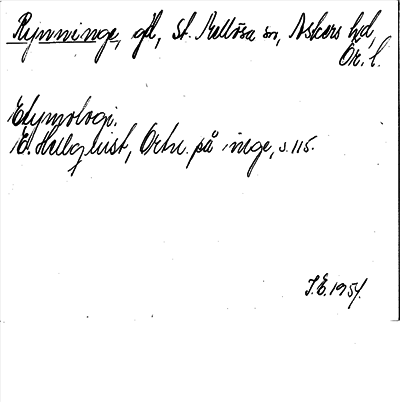 Rynninge, gd, St. Mellösa sn, Askers hd,
Ör. l.
Etymologi.
E. Hellquist, Ortn. på inge, s. 115.
J.E. 1954.